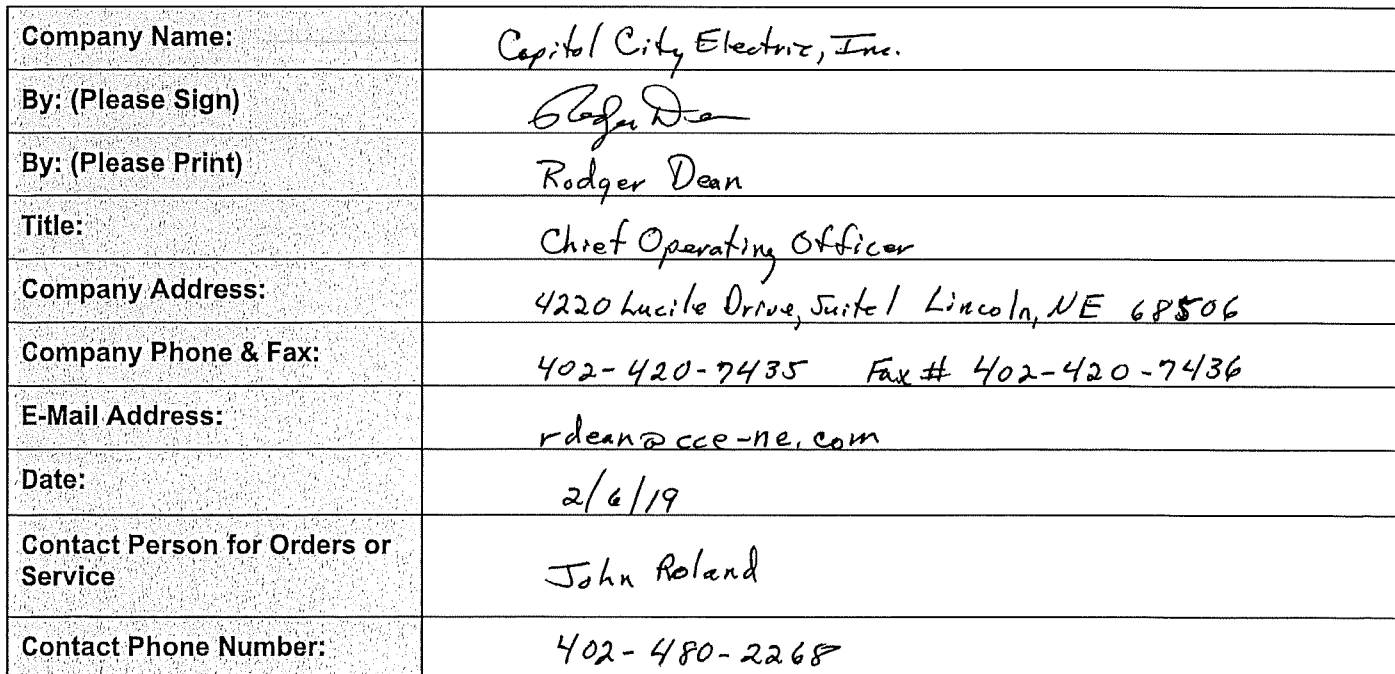 Company Name: Capitol City Electric, Inc.
By: (Please Sign) Rodger Dean
By: (Please Print) Rodger Dean
Title: Chief Operating Officer
Company Address: 4220 Lucile Drive, Suite 1 Lincoln, NE 68506
Company Phone & Fax: 402-420-7435 Fax # 402-420-7436
E-Mail Address: rdean@cce-ne.com
Date: 2/6/19
Contact Person for Orders or
Service John Roland
Contact Phone Number: 402-480-2268